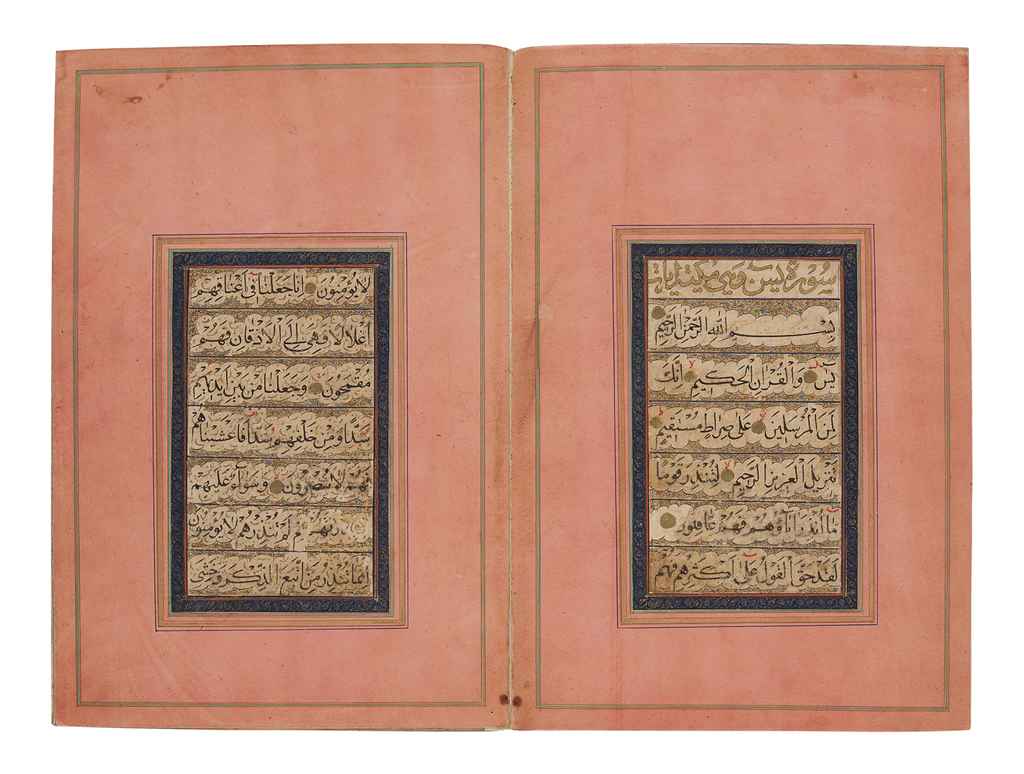 سورة يس وهي مكية
بسم الله الرحمن الرحيم
يس والقرآن الحكيم انك
لمن المرسلين على صراط مستقيم
تنزيل العزيز الرحيم لتنذر قوما
ما انذر اباؤهم فهم غافلون
لقد حق القول على اكثرهم فهم
لا يؤمنون انا جعلنا في اعناقهم
اغلالا فهي الى الاذقان فهم
مقمحون وجعلنا من بين ايديهم
سدا ومن خلفهم سدا فاغشيناهم
فهم لا يبصرون وسواء عليهم
لم تنذرهم لا يؤمنون
انما تنذر من اتبع الذكر وخشي